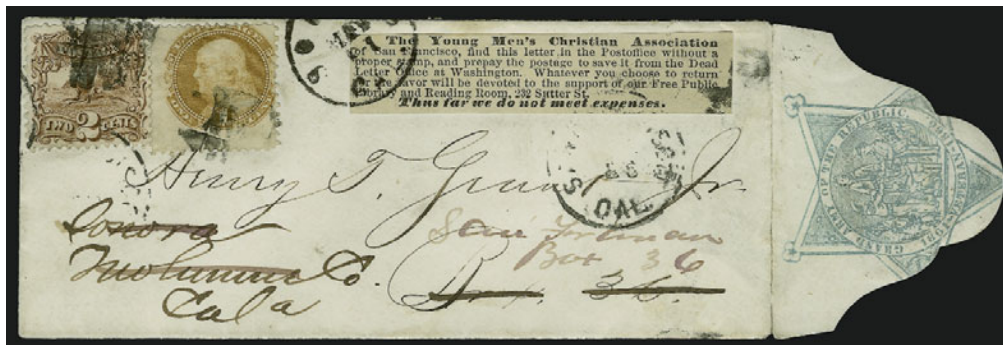 The Young Men's Christian Association
of San Francisco, find this letter in the Postoffice without a
proper stamp, and prepay the postage to save it from the Dead
Letter Office at Washington. Whatever you choose to return
for the favor will be devoted to the support of our Free Public
Library and Reading Room, 232 Sutter St.
Thus far we do not meet expenses.
TWO 2 CENTS
MAY
Henry T. Jr.
Sonora
Tuolumne Co.
Cala
San
Box 36
Box 36.
CAL
GRAND ARMY OF THE REPUBLIC.